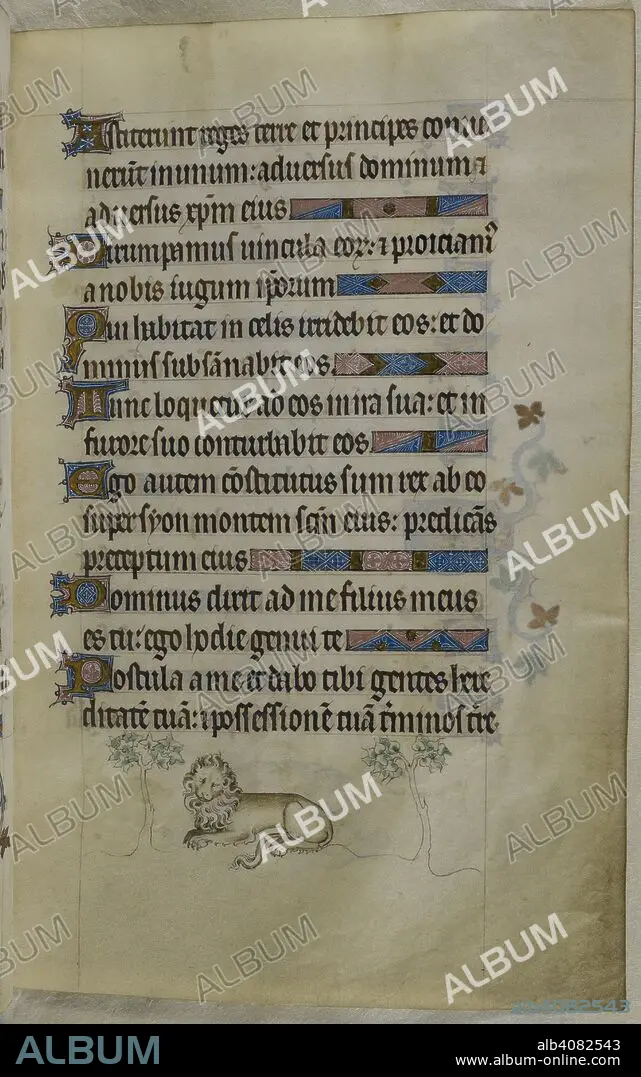 Astiterunt reges terre et principes conue
nerūt in unum: aduersus dominum ⁊
aduersus xp̄m eius
Dirumpamus uincula eoꝝ: ⁊ proiciam᷒
a nobis iugum ip̄orum
Qui habitat in celis irridebit eos: et do
minus subsānabit eos.
Tunc loquetur ad eos in ira sua: et in
furore suo conturbabit eos
Ego autem cōstitutus sum rex ab eo
super syon montem sc̄m eius: predicās
preceptum eius
Dominus dixit ad me filius meus
es tu: ego hodie genui te
Postula a me et dabo tibi gentes here
ditatē tuā: ⁊ possessionē tuā t̄minos t̄re
ALBUM
alb4082543
ALBUM
alb4082543
www.album-online.com